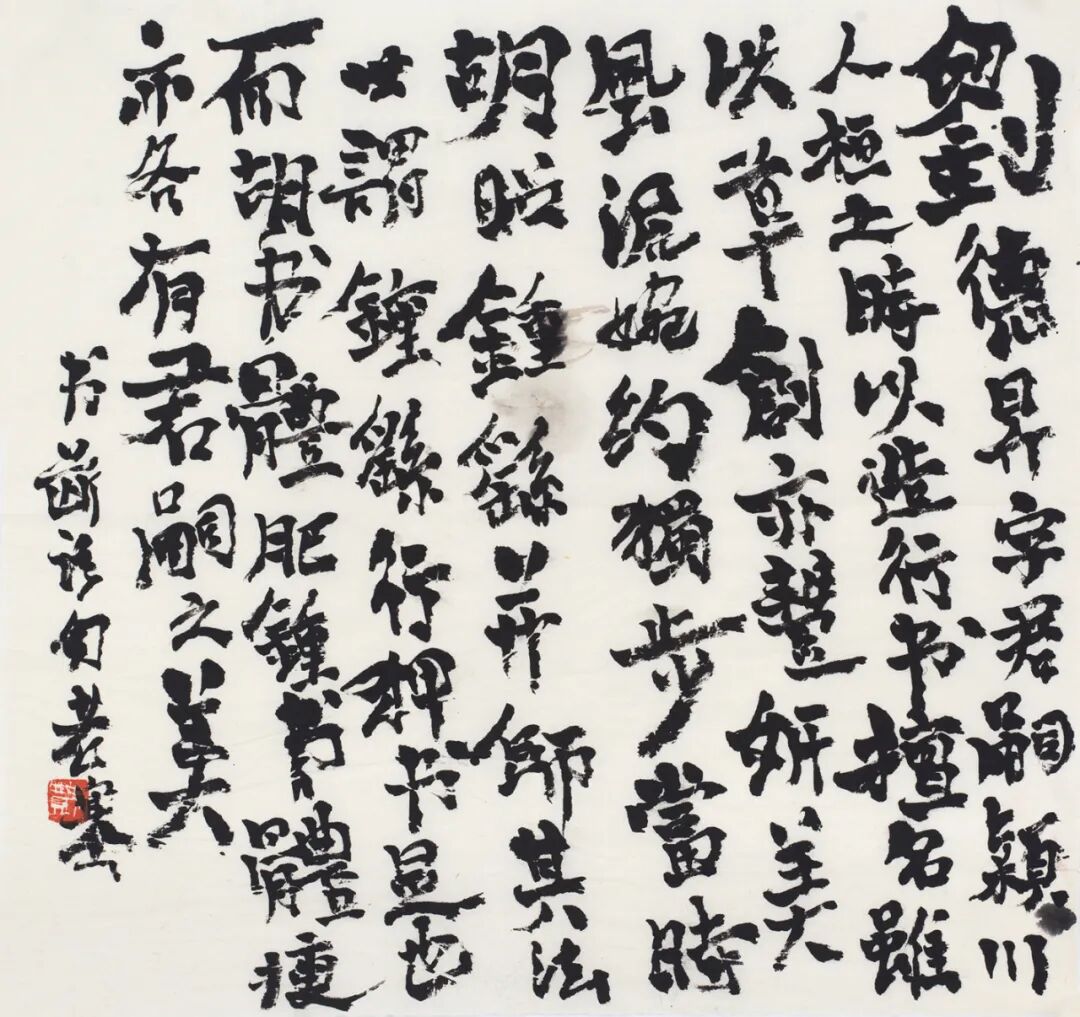 劉德昇字君嗣潁川
人桓時以造行书擅名雖
以草創亦豐妍美
風流婉约獨步當時
胡昭鍾繇並師其法
世謂鍾繇行押书是也
而胡书體肥鍾書體瘦
亦各有君嗣之美
书斷语句